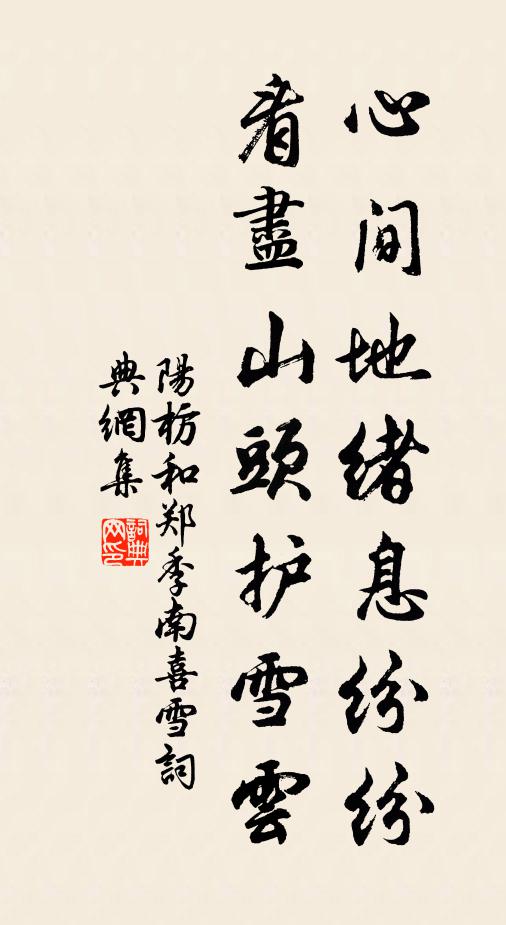 心间地绪息纷纷
看盡山頭护雪雲
陽枋和郑季南喜雪詞
典網集
詞典
网印